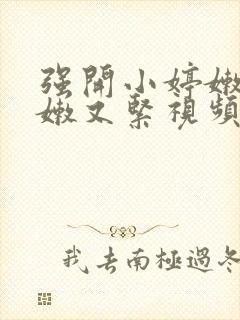 强開小婷嫩
嫩又緊視頻
我去南極過冬